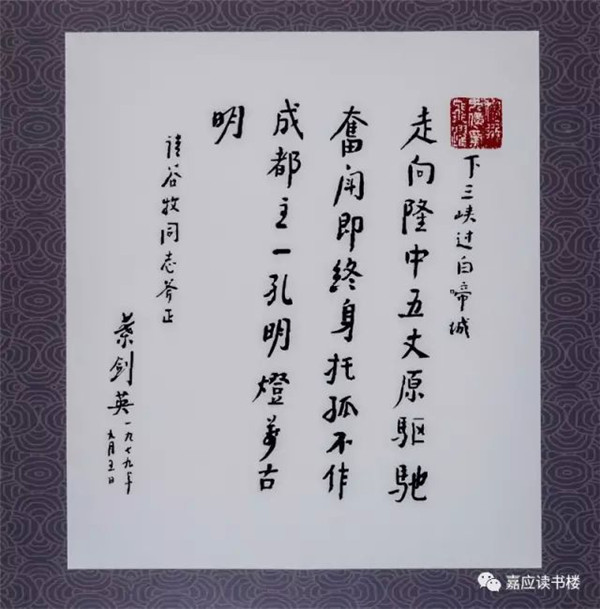 下三峡过白啼城
走向隆中五丈原驱驰
奮鬥即終身托孤不作
成都主一孔明燈萬古
明
请谷牧同志斧正
葉剑英一九七九年
九月五日
嘉应读书楼